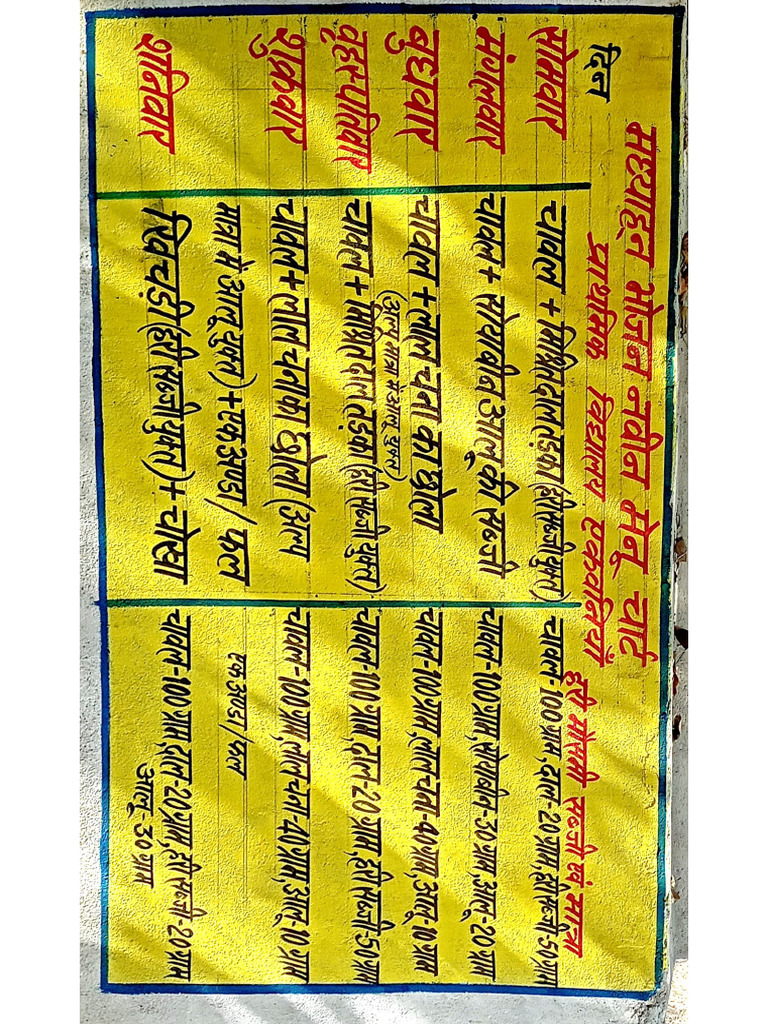 मध्याह्न भोजन नवीन मेनू चार्ट
प्राथमिक विद्यालय एकवनियाँ
दिन
हरी मौसमी सब्जी एवं मात्रा
सोमवार चावल + मिश्रित दाल तड़का (हरी सब्जी युक्त) चावल-100 ग्राम, दाल-20 ग्राम, हरी सब्जी-50 ग्राम
मंगलवार चावल + सोयाबीन आलू की सब्जी चावल-100 ग्राम, सोयाबीन-30 ग्राम, आलू-20 ग्राम
बुधवार चावल + लाल चना का छोला चावल-100 ग्राम, लाल चना-40 ग्राम, आलू-10 ग्राम
(अल्प मात्रा में आलू युक्त)
वृहस्पतिवार चावल + मिश्रित दाल तड़का (हरी सब्जी युक्त) चावल-100 ग्राम, दाल-20 ग्राम, हरी सब्जी-50 ग्राम
शुक्रवार चावल + लाल चने का छोला (अल्प चावल-100 ग्राम, लाल-चना-40 ग्राम, आलू-10 ग्राम
मात्रा में आलू युक्त) + एक अण्डा / फल एक अण्डा / फल
शनिवार खिचड़ी (हरी सब्जी युक्त) + चोखा चावल-100 ग्राम, दाल-20 ग्राम, हरी सब्जी-20 ग्राम
आलू-30 ग्राम